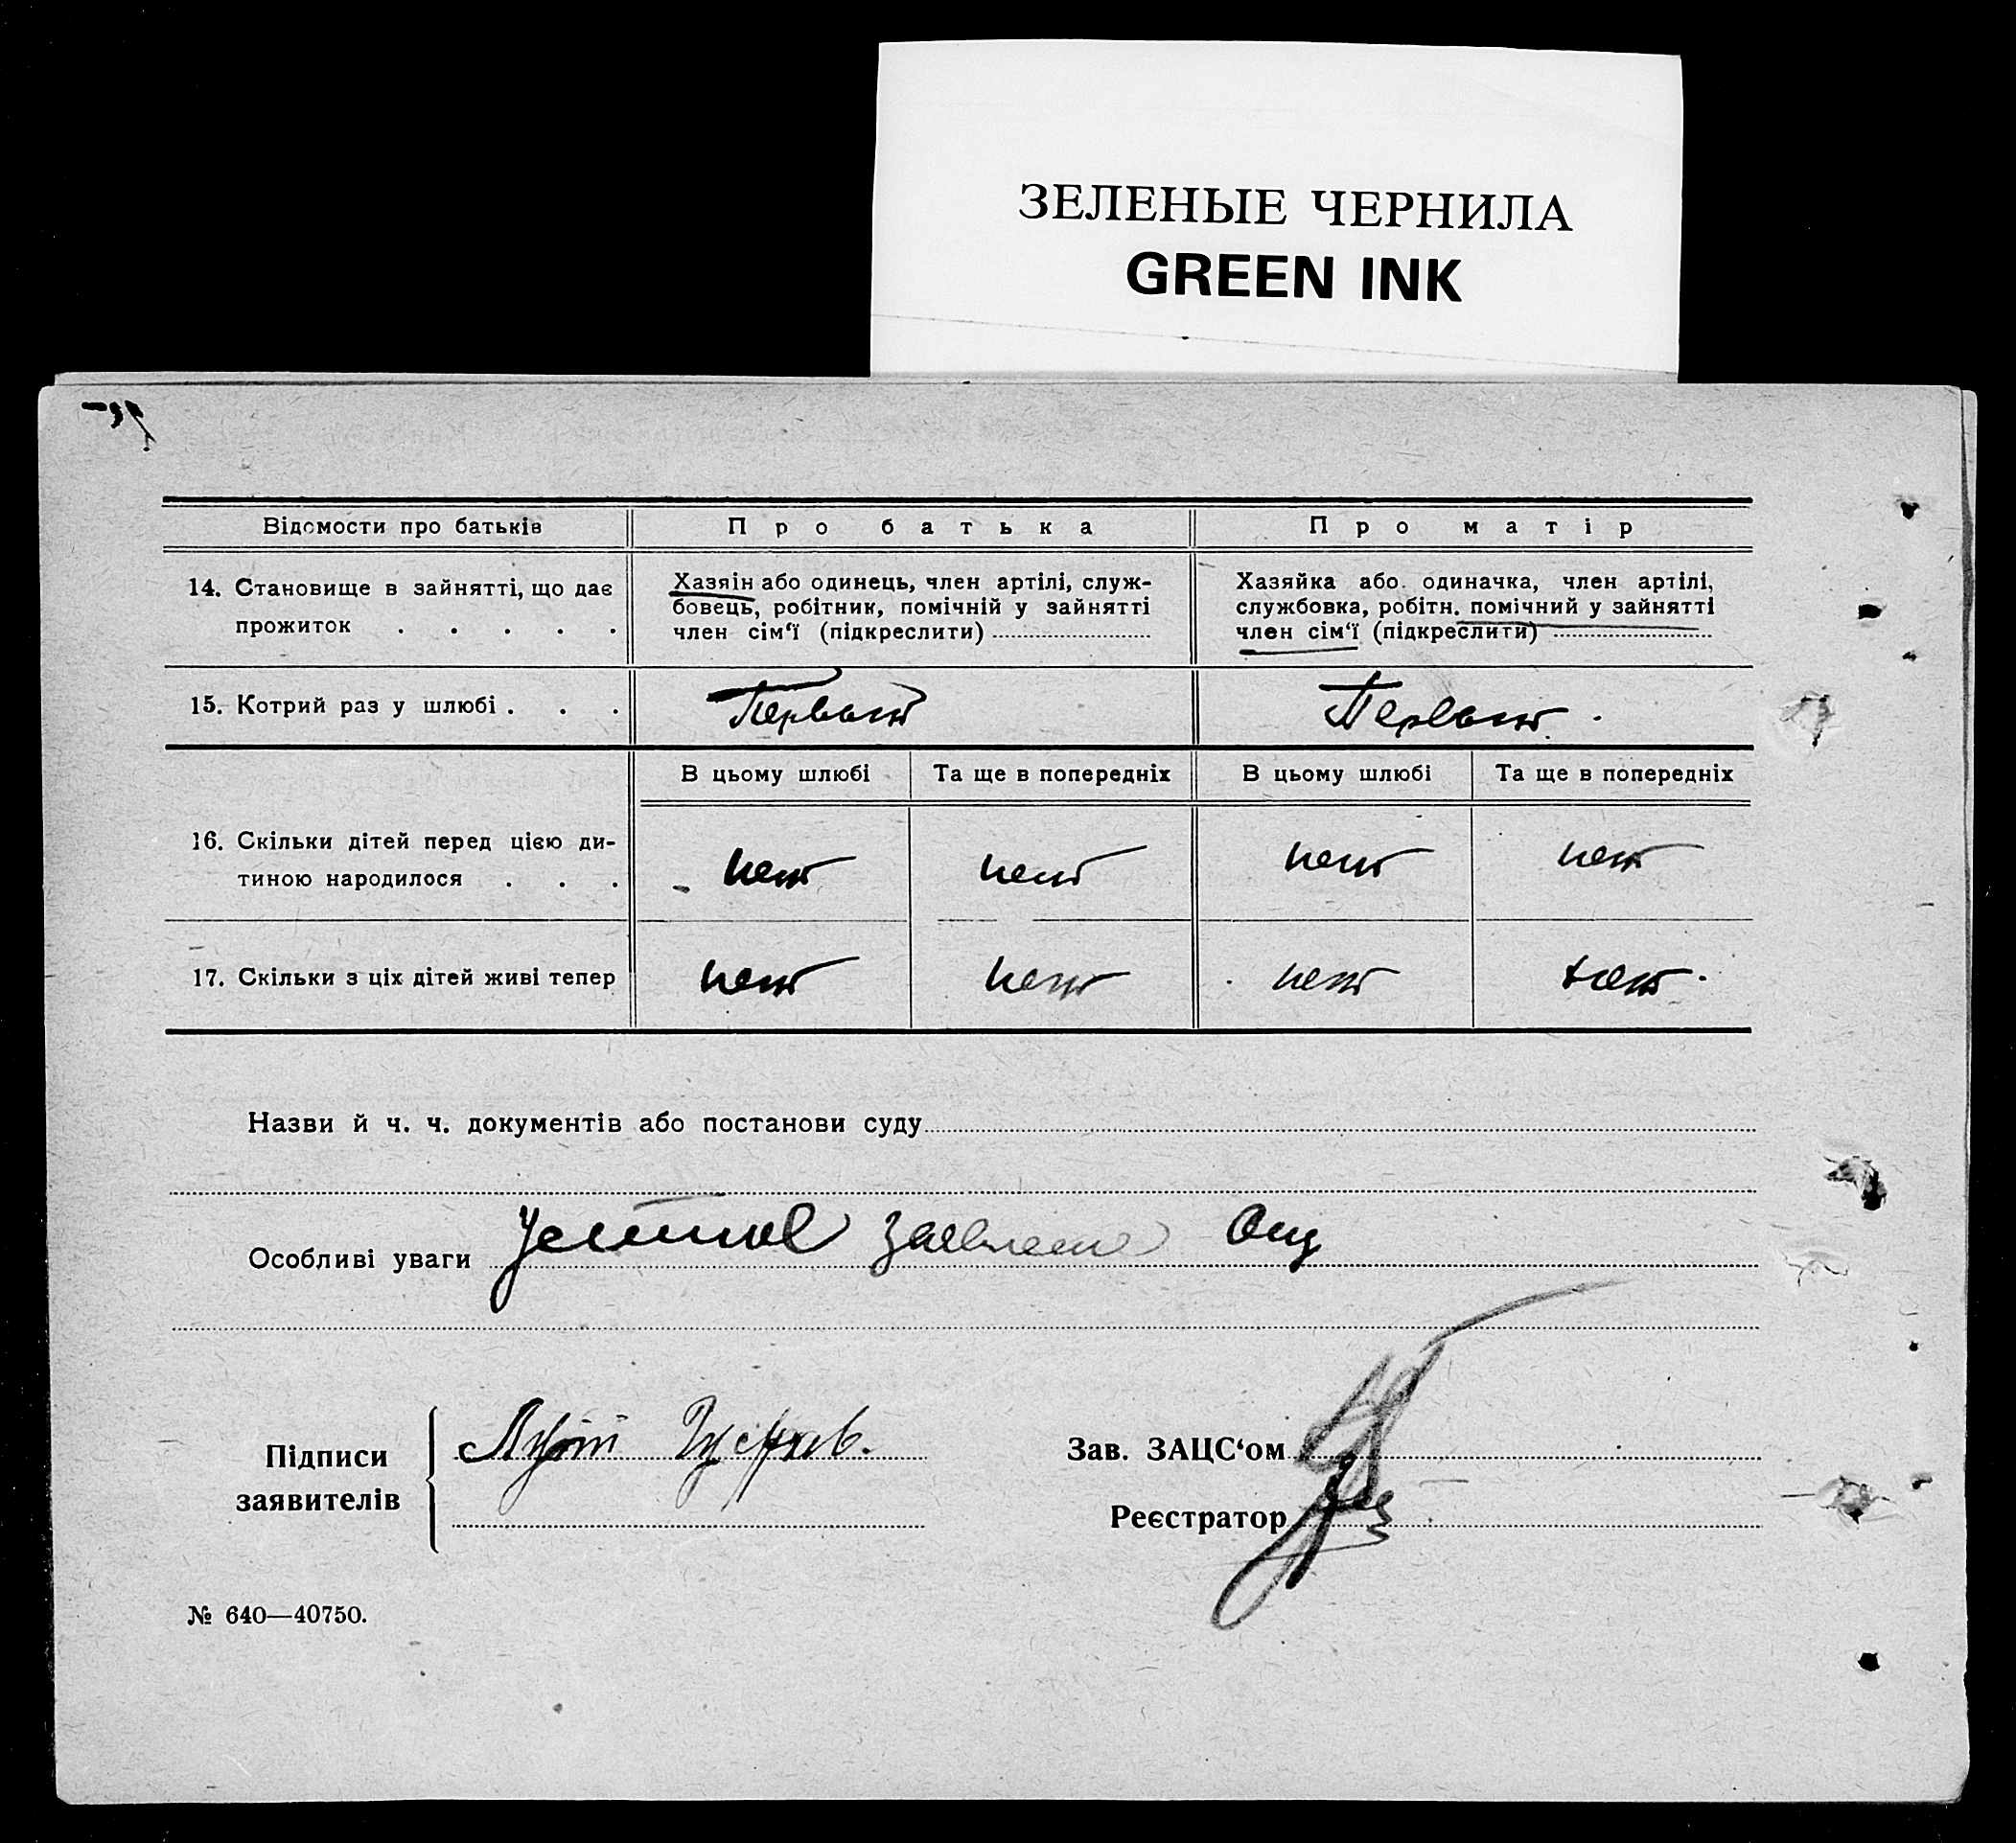 ЗЕЛЕНЫЕ ЧЕРНИЛА
GREEN INK
Відомости про батьків Про батька Про матір
14. Становище в зайнятті, що дає
прожиток . . . . .
Хазяін або одинець, член артілі, служ-
бовець, робітник, помічній у зайнятті
член сім‘ї (підкреслити)
Хазяйка або одиначка, член артілі,
службовка, робітн. помічний у зайнятті
член сім‘ї (підкреслити)
15. Котрий раз у шлюбі . . . Первый Первый
В цьому шлюбі Та ще в попередніх В цьому шлюбі Та ще в попередніх
16. Скільки дітей перед цією ди-
тиною народилося . . .
нет нет нет нет
17. Скільки з ціх дітей живі тепер нет нет нет нет
Назви й ч. ч. документів або постанови суду
Особливі уваги
Підписи
заявителів
Зав. ЗАЦС‘ом
Реєстратор
№ 640—40750.